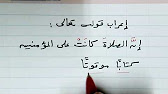 إعراب قوله تعالى :
إنَّ الصلاةَ كانَتْ على المؤمنين
كتابًا موقوتًا